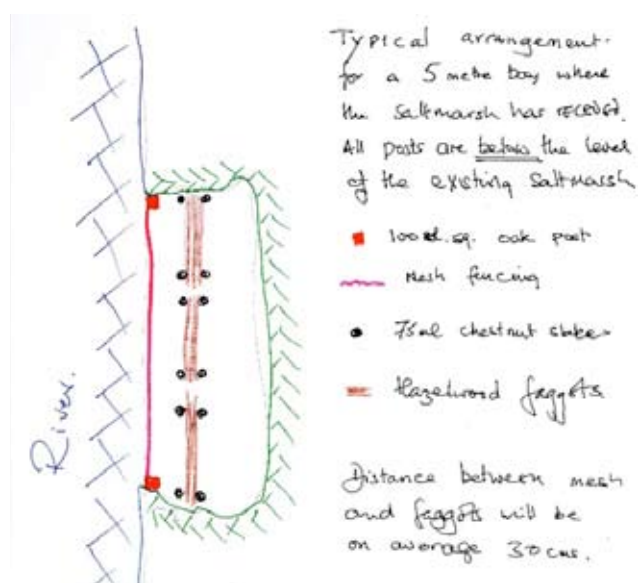 Typical arrangement
for a 5 metre bay where
the Saltmarsh has receded.
All posts are below the level
of the existing Saltmarsh
100 sq. oak post
Mesh fencing
75ml chestnut stakes
Hazelwood faggots
River.
Distance between mesh
and faggots will be
on average 30 cms.